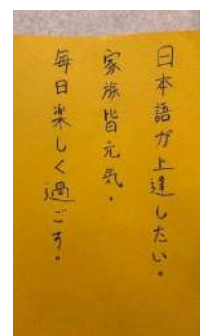 日本語が上達したい。
家族皆元気。
毎日楽しく過ごす。